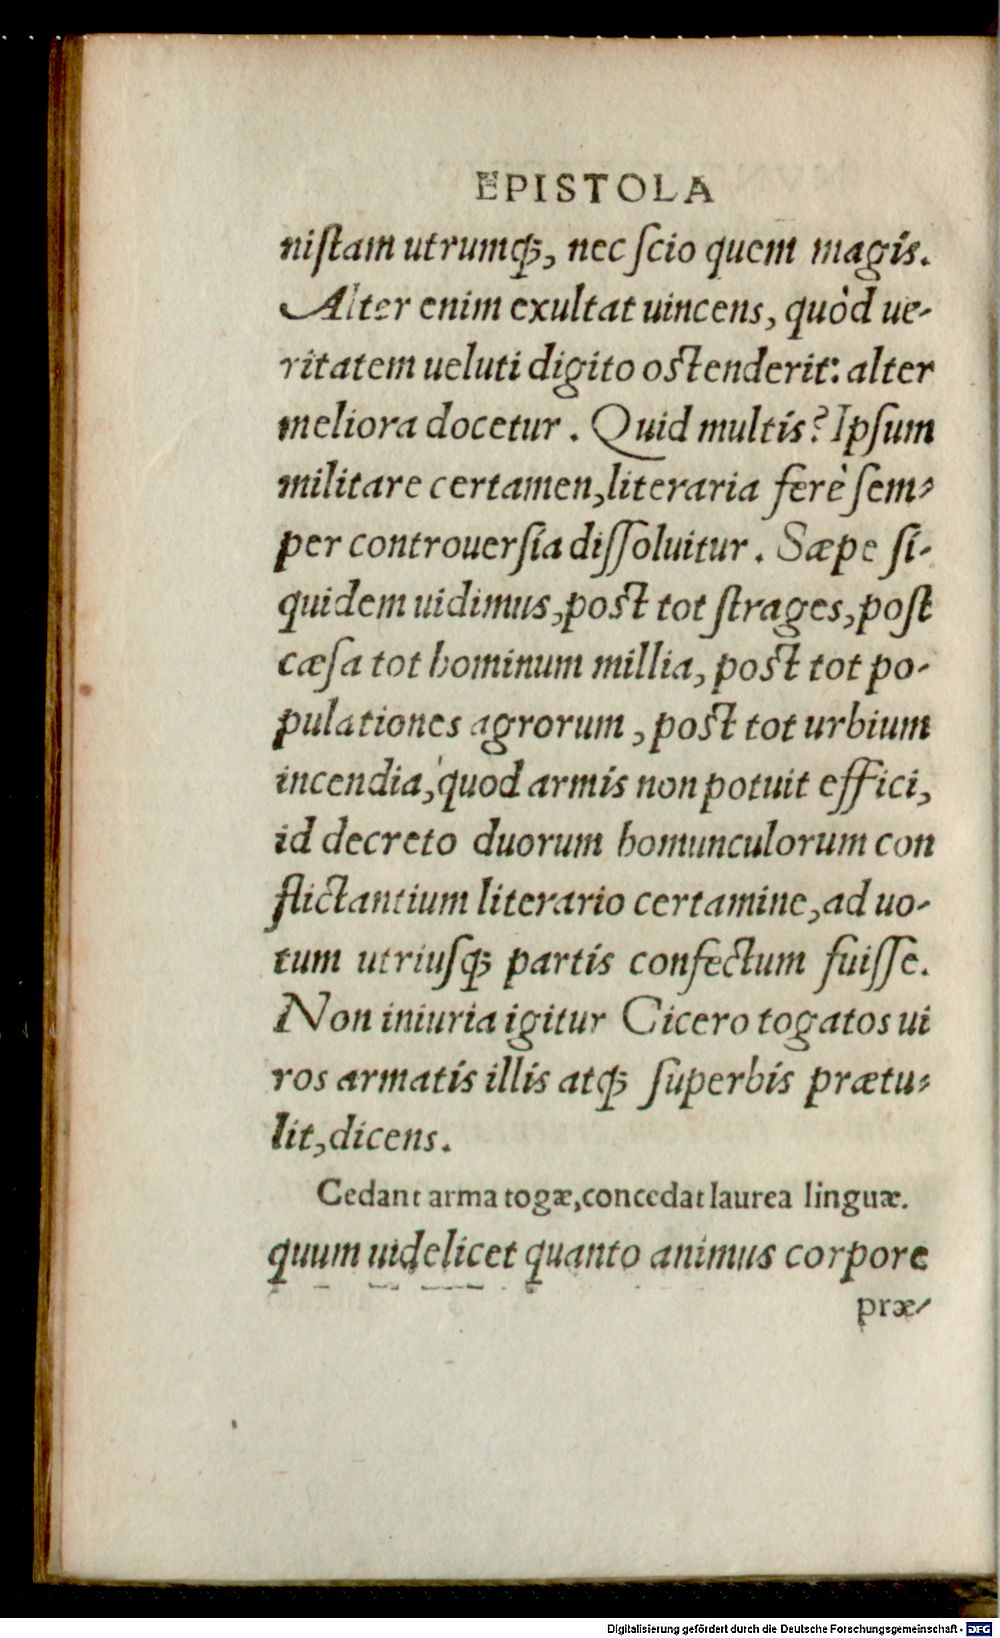 EPISTOLA
niſtam utrumq́ꝫ, nec ſcio quem magis.
Alter enim exultat uincens, quòd ue-
ritatem ueluti digito oſtenderit: alter
meliora docetur. Quid multis? Ipſum
militare certamen, literaria ferè ſem-
per controuerſia diſſoluitur. Sæpe ſi-
quidem uidimus, poſt tot ſtrages, poſt
cæſa tot hominum millia, poſt tot po-
pulationes agrorum, poſt tot urbium
incendia, quod armis non potuit effici,
id decreto duorum homunculorum con
flictantium literario certamine, ad uo-
tum utriuſq́ꝫ partis confectum fuiſſe.
Non iniuria igitur Cicero togatos ui
ros armatis illis atq́ꝫ ſuperbis prætu-
lit, dicens.
Cedant arma togæ, concedat laurea linguæ.
quum uidelicet quanto animus corpore
præ-
Digitalisierung gefördert durch die Deutsche Forschungsgemeinschaft - DFG